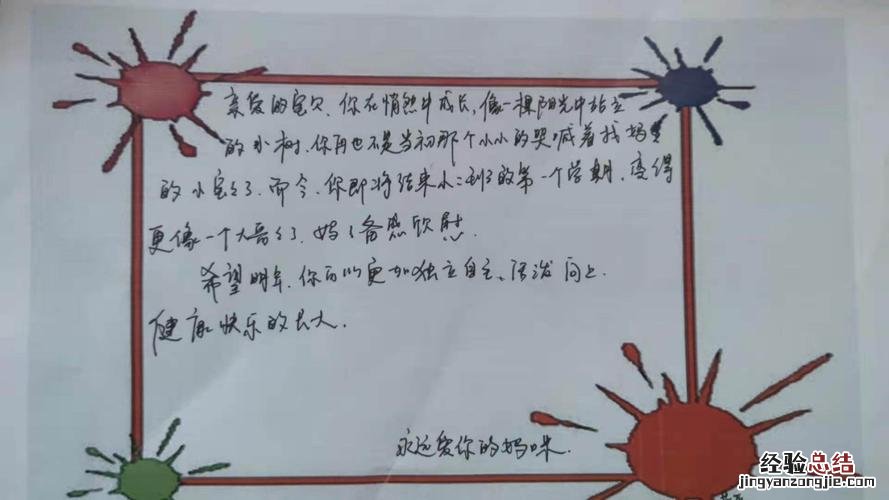 亲爱的宝贝、你在悄然中成长,像一棵阳光中挺立
的小树、你再也不是当初那个小小的哭喊着找妈妈
的小宝宝了、而今、你即将结束小二班的第一个学期、变得
更像一个大哥哥了、妈妈备感欣慰.
希望明年、你可以更加独立自主、活泼向上.
健康快乐的长大.
永远爱你的妈咪.
经验总结
jingyanzongjie.com